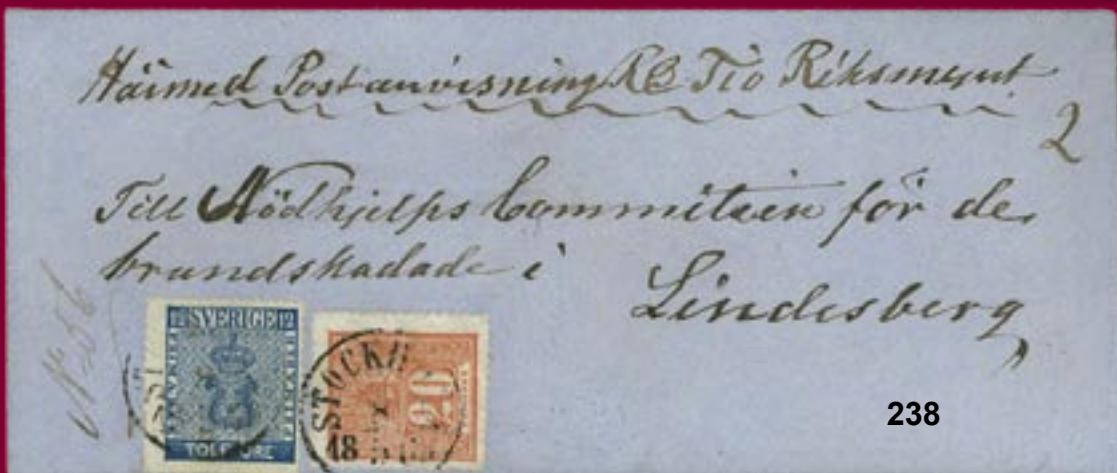 Häimed Postanvisning RD Tio Riksmynt
2
Till Nödhjelps Committeen för de
brandskadade i
Lindesberg
N 556
12 SVERIGE 12
TOLF ÖRE
STOCKH
20
18
238